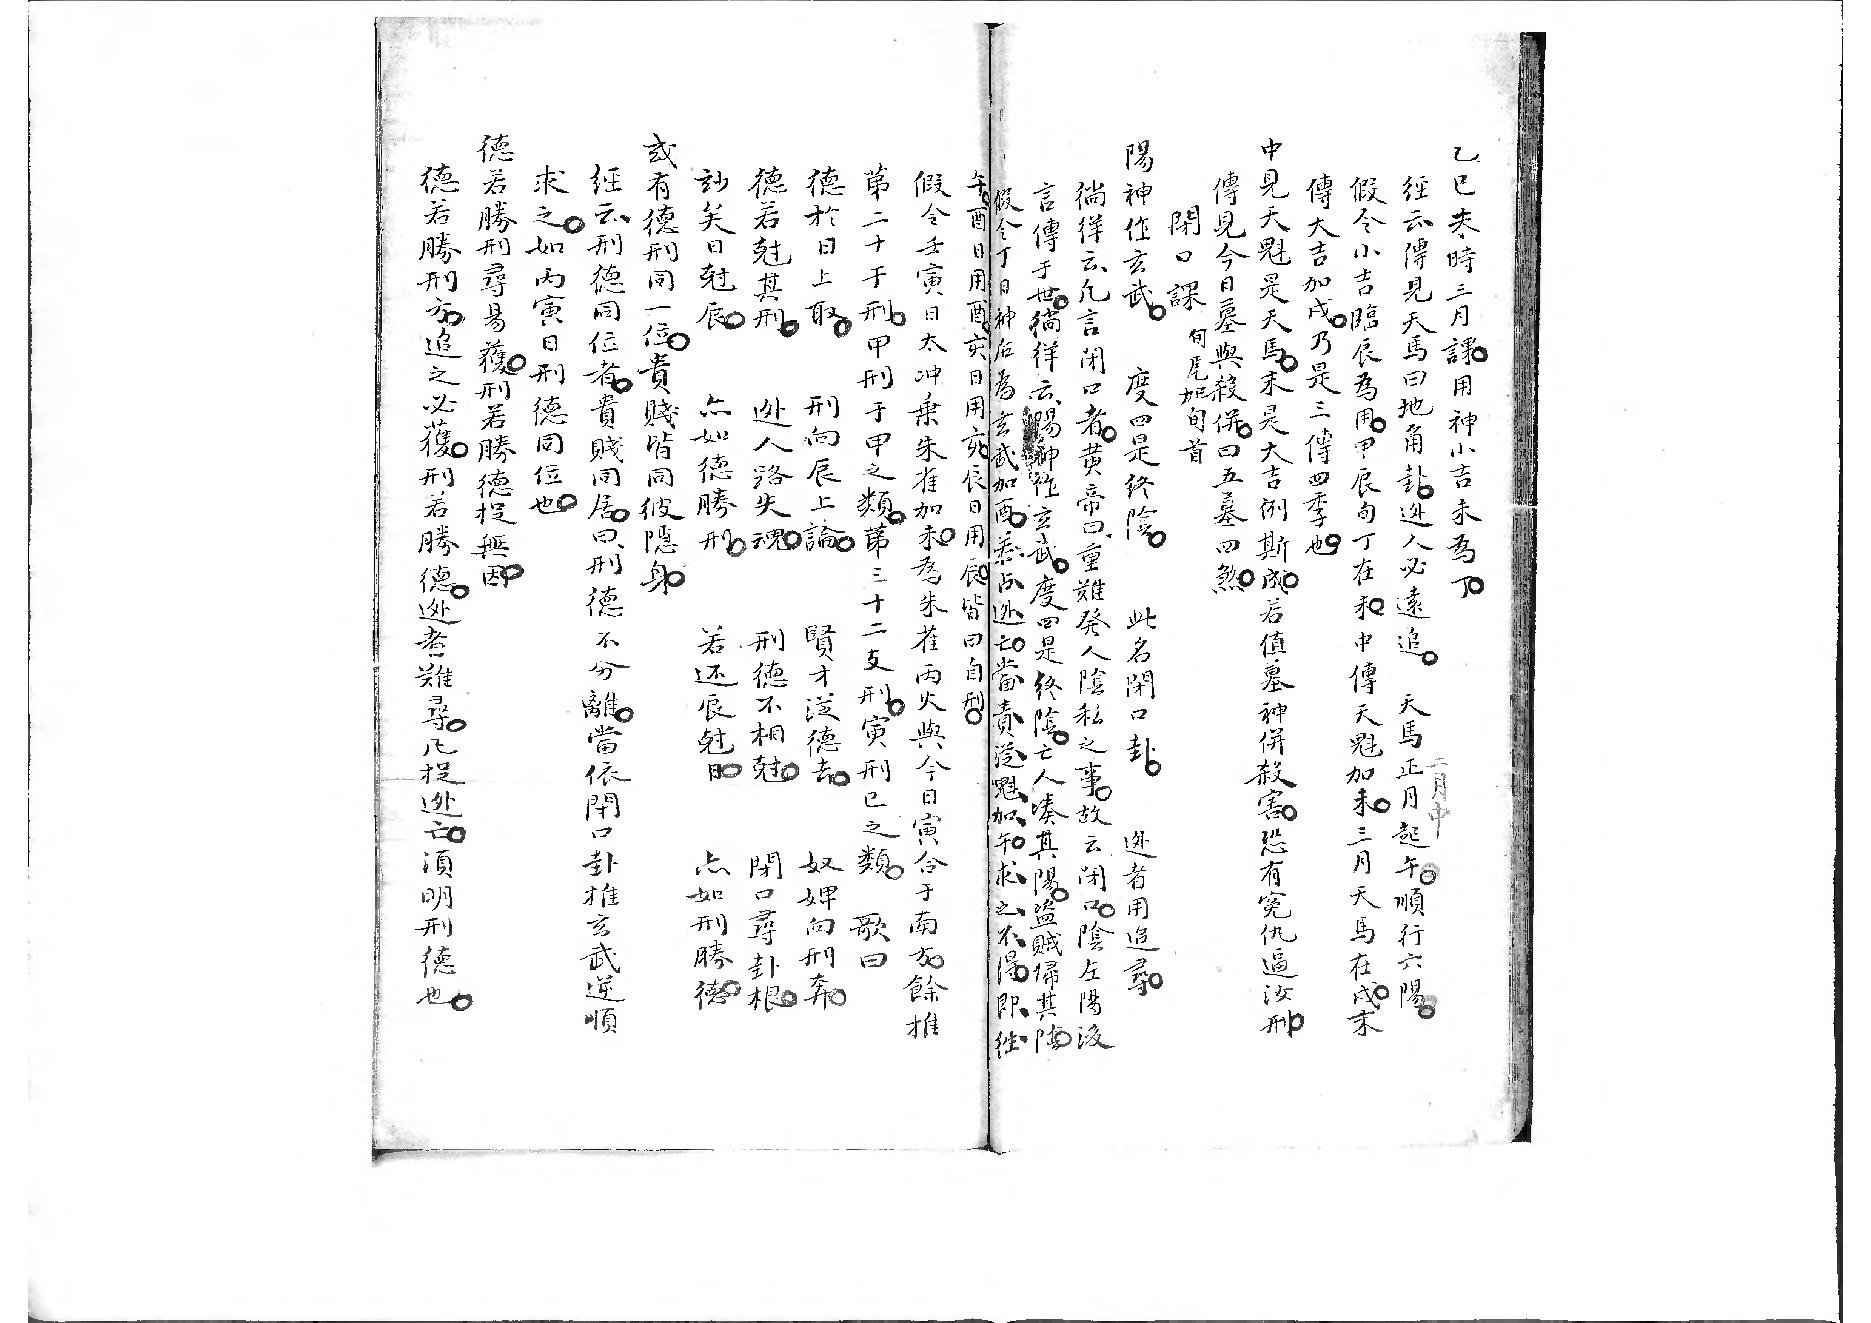 乙巳未時三月課用神小吉未為丁
經云傳見天馬曰地角卦逃人必遠追 天馬正月起午順行六陽
二月中
假令小吉臨辰為用甲辰旬丁在未中傳天魁加未三月天馬在戌末
傳大吉加戌乃是三傳四季也
中見天魁是天馬末是大吉例斯成若值墓神併殺害恐有冤仇逼汝刑
傳見今日墓與殺併曰五墓四煞
閉口課 旬尾加旬首
陽神作玄武 度四是終陰 此名閉口卦 逃者用追尋
徜徉云凡言閉口者黄帝曰重難癸人陰私之事故云閉口陰左陽後
言傳于世徜徉云陽神作玄武度四是終陰亡人湊其陽盗賊歸其陰
假令丁日神后為玄武加酉若占逃亡當責從魁加午求之不得即往
午酉日用酉亥日用亥辰日用辰皆曰自刑
假令壬寅日太冲乗朱雀加未為朱雀丙火與今日寅合于南方餘推
苐二十干刑甲刑于甲之類苐三十二支刑寅刑巳之類 歌曰
德於日上取 刑向辰上論 賢才逆德去 奴婢向刑奔
德若尅其刑 逃人路失魂 刑德不相尅 閉口尋卦根
訬矣日尅辰 亦如德勝刑 若还辰尅日 亦如刑勝德
或有德刑同一位貴賤皆同彼隱身
經云刑德同位者貴賤同居曰刑德不分離當依閉口卦推玄武逆順
求之如丙寅日刑德同位也
德若勝刑尋易獲刑若勝德捉無因
德若勝刑方追之必獲刑若勝德逃者難尋凡捉逃亡須明刑德也